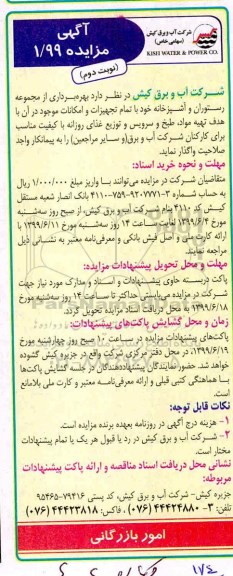 شرکت آب و برق کیش
(سهامی خاص)
KISH WATER & POWER CO.
آگهی
مزایده ۱/۹۹
(نوبت دوم)
شرکت آب و برق کیش در نظر دارد بهره‌برداری از مجموعه
رستوران و آشپزخانه خود با تمام تجهیزات و امکانات موجود در آن با
هدف تهیه مواد، طبخ و سرویس و توزیع غذای روزانه با کیفیت مناسب
برای کارکنان شرکت آب و برق(و سایر مراجعین) را به پیمانکار واجد
صلاحیت واگذار نماید.
مهلت و نحوه خرید اسناد:
متقاضیان شرکت در مزایده می‌توانند با واریز مبلغ ۱/۰۰۰/۰۰۰ ریال
به حساب شماره ۳-۹۲۰۷۷۷۱-۷۵۹-۴۱۱۰ بانک انصار شعبه مستقل
کیش کد ۴۱۱۰ بنام شرکت آب و برق کیش، از صبح روز سه‌شنبه
مورخ ۱۳۹۹/۶/۴ لغایت ساعت ۱۴ روز سه‌شنبه مورخ ۱۳۹۹/۶/۱۱ با
ارائه کارت ملی و اصل فیش بانکی و معرفی‌نامه معتبر به نشانی ذیل
مراجعه نمایند.
مهلت و محل تحویل پیشنهادات مزایده:
پاکت دربسته حاوی پیشنهادات و اسناد و مدارک مورد نیاز جهت
شرکت در مزایده می‌بایستی حداکثر تا ساعت ۱۴ روز سه‌شنبه مورخ
۱۳۹۹/۶/۱۸ به محل دریافت اسناد مزایده تحویل گردد.
زمان و محل گشایش پاکت‌های پیشنهادات:
پاکت‌های پیشنهادات مزایده در ساعت ۱۰ صبح روز چهارشنبه مورخ
۱۳۹۹/۶/۱۹، در محل دفتر مرکزی شرکت واقع در جزیره کیش گشوده
خواهد شد. حضور نمایندگان پیشنهاددهندگان در جلسه گشایش پاکت‌ها
با هماهنگی کتبی قبلی و ارائه معرفی‌نامه معتبر و کارت ملی بلامانع
است.
نکات قابل توجه:
۱- هزینه درج آگهی در روزنامه بعهده برنده مزایده است.
۲- شرکت آب و برق کیش در رد یا قبول هر یک یا تمام پیشنهادات
مختار است.
نشانی محل دریافت اسناد مناقصه و ارائه پاکت پیشنهادات
مربوطه:
جزیره کیش- شرکت آب و برق کیش، کد پستی ۷۹۴۱۶-۹۵۴۶۵
تلفن: ۳-۴۴۴۲۴۸۸۰ (۰۷۶) ، فاکس: ۴۴۴۲۳۸۱۸ (۰۷۶)
امور بازرگانی